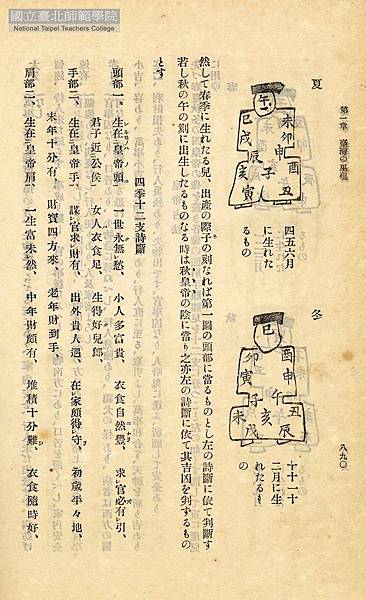 國立臺北師範學院
National Taipei Teachers College
第一章 臺灣の巫覡
八九〇
夏
午
未
卯
巳
戌
申
酉
辰
子
亥
寅
丑
四五六月
に生れた
るもの
冬
巳
酉
申
卯
寅
午
丑
子
亥
辰
未
戌
十十一十
二月に生
れたるも
の
然して春季に生れたる兒、出產の際子の刻なれば第一圖の頭部に當るものとし左の詩斷に依て判斷す
若し秋の午の刻に出生したるものなる時は秋皇帝の陰に當り之亦左の詩斷に依て其吉凶を判するもの
とす
四季十二支詩斷
頭部一、生在皇帝頭 一世永無愁、 小人多富貴、 衣食自然豐、 求官必有引、
君子近公侯 女人衣食足、 生得好兒郎、
手部二、生在皇帝手、 謀官求財有、 出外貴人遇、 在家顏得守、 初歲平々地、
末年十分有、 財寶四方來、 老年財到手、
肩部二、生在皇帝肩、 一生富未然、 中年財頗有、 堆積十分難、 衣食隨時好、